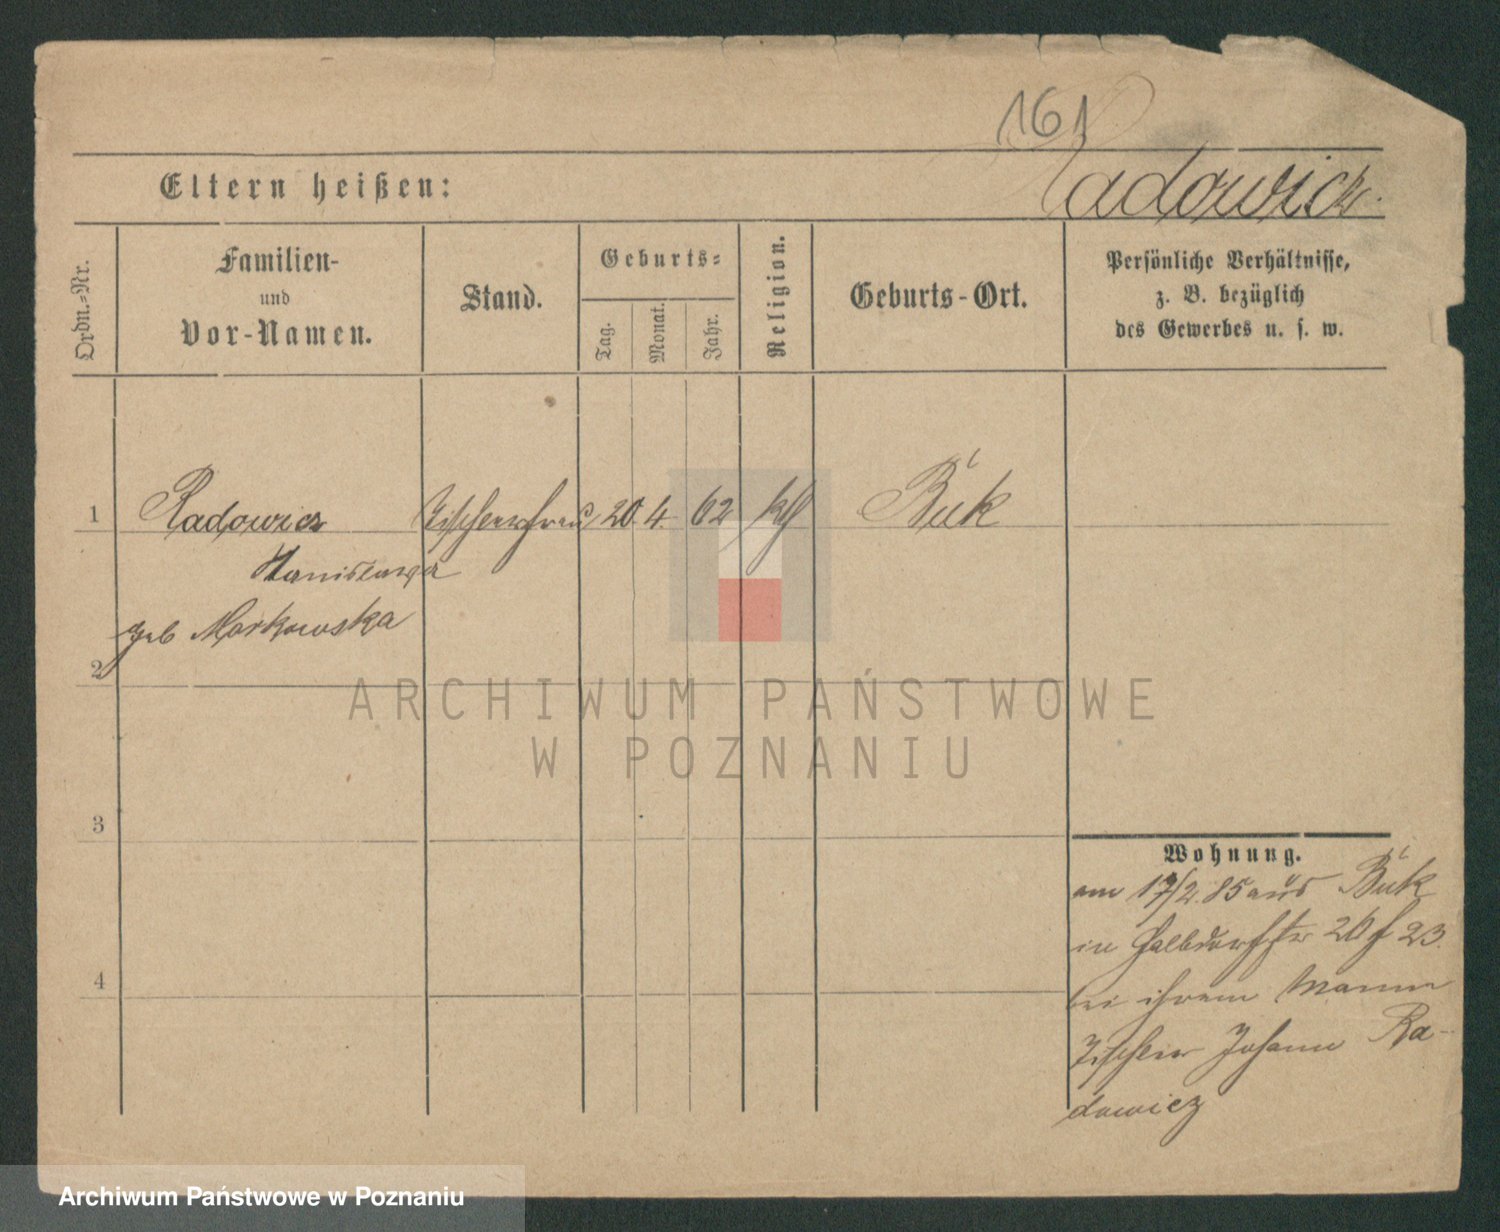 161
Eltern heißen:
Radowicz.
Ordn.=Nr.
Familien-
und
Vor-Namen.
Stand.
Geburts=
Tag.
Monat.
Jahr.
Religion.
Geburts-Ort.
Persönliche Verhältnisse,
z. B. bezüglich
des Gewerbes u. s. w.
1
Radowicz Tischlersfrau 20. 4. 62 kth Buk
Stanislawa
geb Markowska
2
3
4
Wohnung.
am 17/2. 85 aus Buk
in Halbdorfstr 26 f 23.
bei ihrem Mann
Tischler Johann Ra-
dowicz
ARCHIWUM PAŃSTWOWE
W POZNANIU
Archiwum Państwowe w Poznaniu